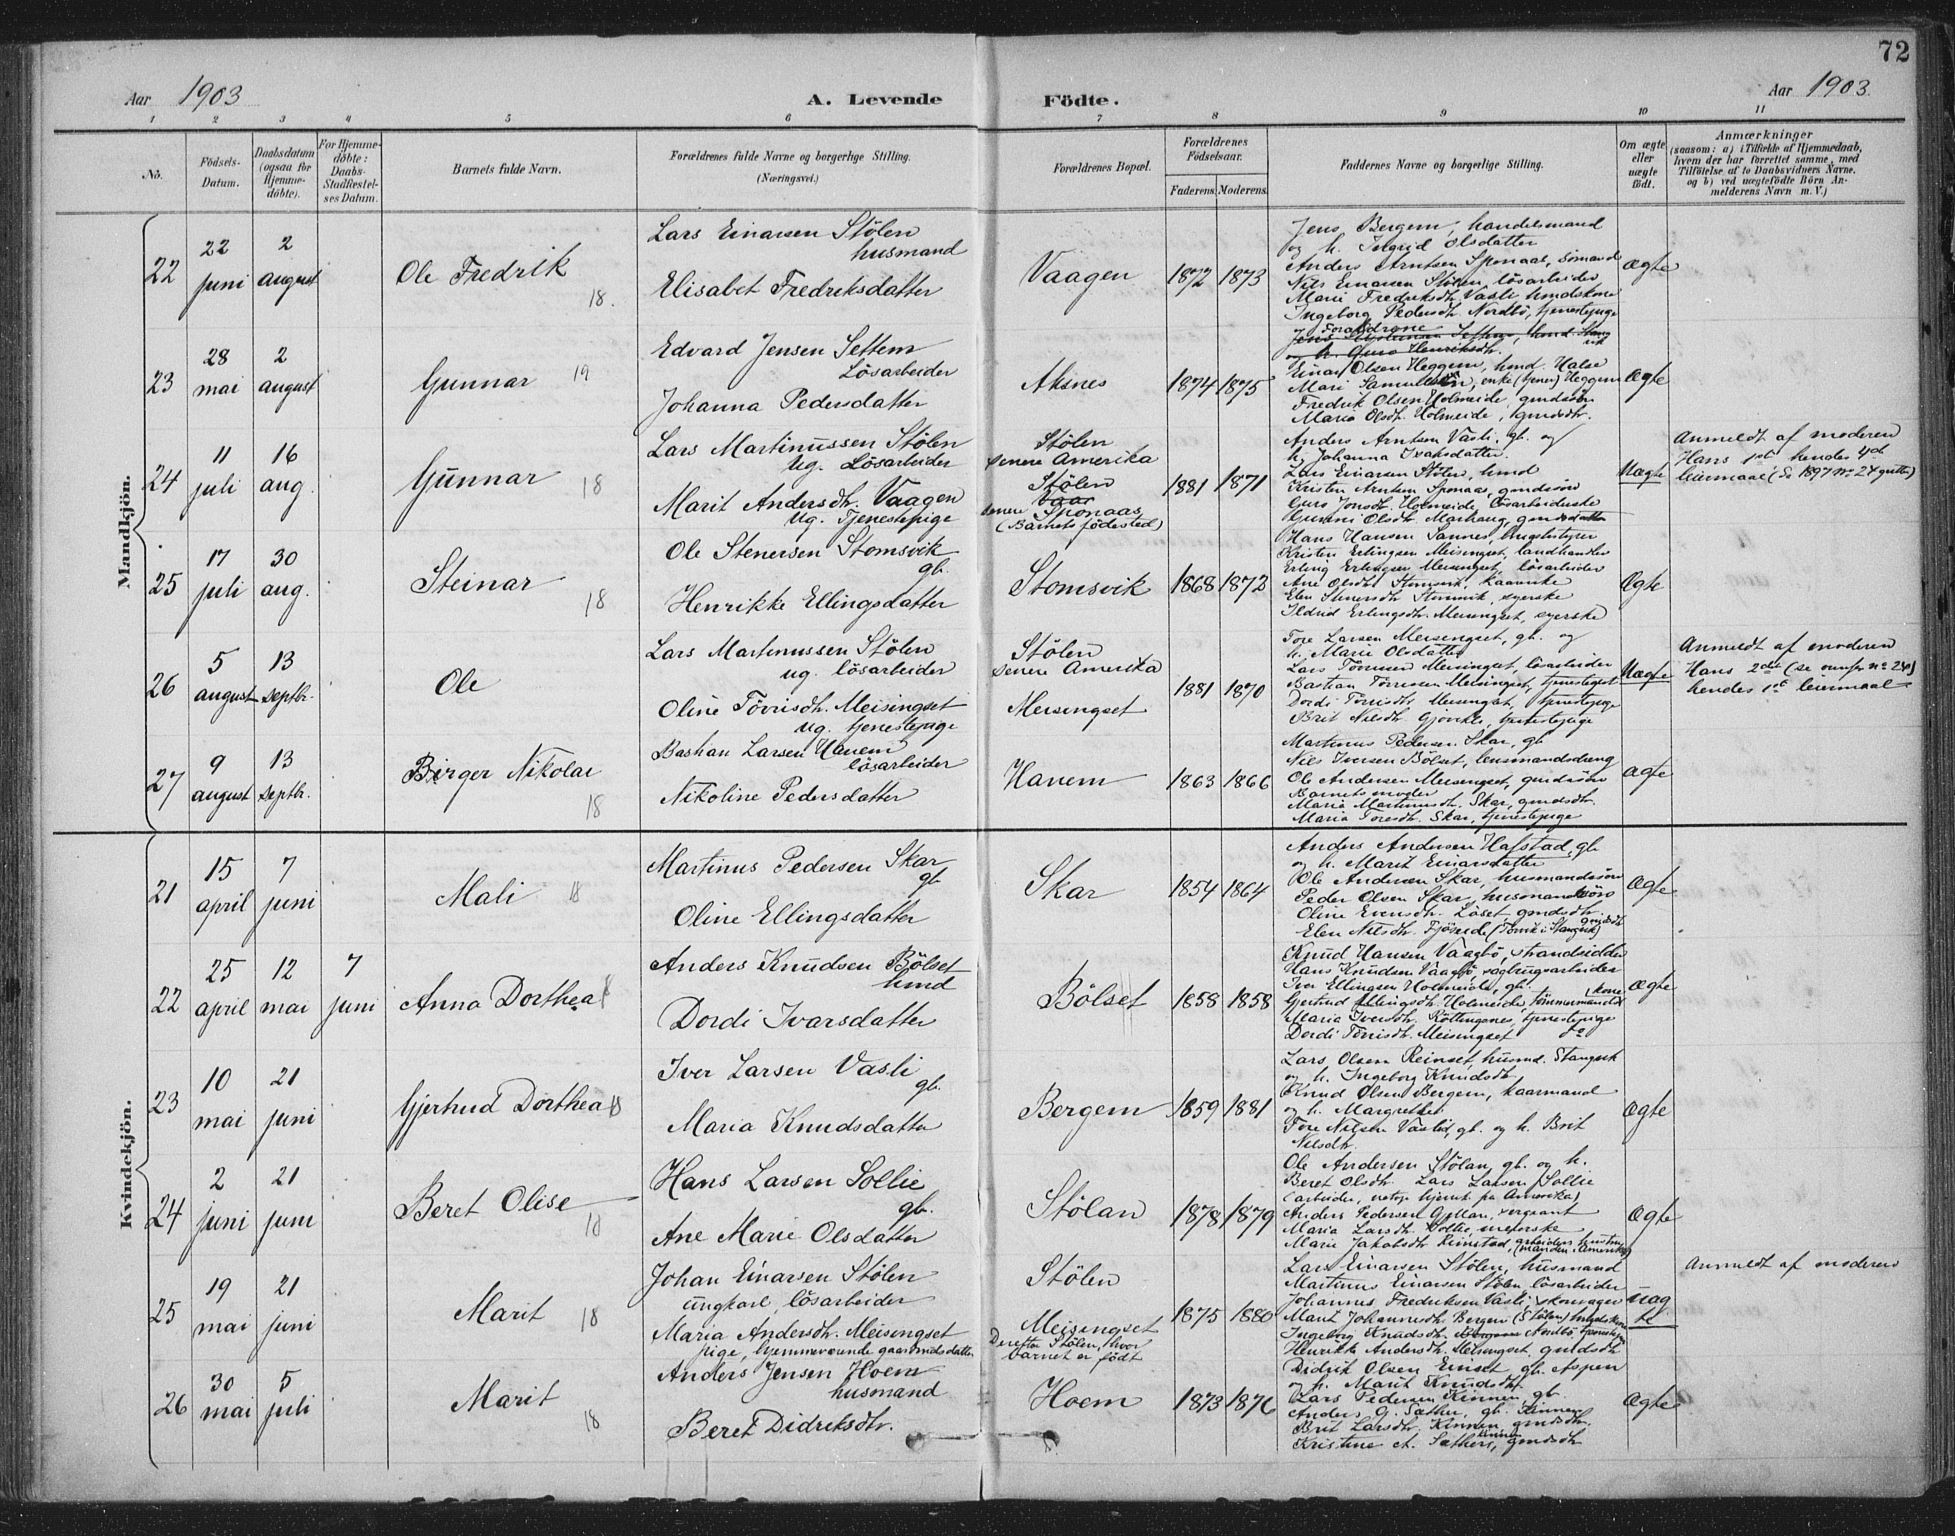 72
Aar 1903
A. Levende Födte.
Aar 1903.
1 2 3 4 5 6 7 8 9 10 11
No.
Födsels-Datum.
Daabsdatum (ogsaa for Hjemme-döbte).
For Hjemme-döbte: Daabs-Stadfæstel-ses Datum.
Barnets fulde Navn.
Forældrenes fulde Navne og borgerlige Stilling.
(Næringsvei.)
Forældrenes Bopæl.
Forældrenes Födselsaar.
Faderens. Moderens.
Faddernes Navne og borgerlige Stilling.
Om ægte eller uægte födt.
Anmærkninger
(saasom: a) i Tilfælde af Hjemmedaab,
hvem der har forrettet samme, med
Tilföielse af to Daabsvidners Navne.
og b) ved uægtefödte Börn An-
melderens Navn m. V.)
Mandkjön.
22
22 juni
2 august
Ole Fredrik
18.
Lars Einarsen Stölen
husmand
Elisabet Fredriksdatter
Vaagen
1872 1873
Jens Bergem, handelsmand
og h. Ingrid Olsdatter
Anders Arntsen Sponaas, sömand
Nils Einarsen Stölen, lösarbeider
Marie Fredriksdtr. Vasli, hmdskone
Ingeborg Pedersdtr. Nordbö, tjenestepige
Ægte
23
28 mai
2 august
Gunnar
19
Edvard Jensen Settem
Lösarbeider
Johanna Pedersdatter
Aksnes
1874 1875
Forældrene
og h. Guro Henriksdtr.
Einar Olsen Heggem, hmd. Halse
Mari, enke (tjener) Heggem
Fredrik Olsen Holmeide, gmdssön
Maria Olsdtr. Holmeide, gmdsdtr.
Ægte
24
11 juli
16 aug.
Gunnar
18
Lars Martinussen Stölen
ug. Lösarbeider
Marit Andersdtr. Vaagen
ug. Tjenestepige
Stölen
senere Amerika
Stölen
senere Sponaas
(Barnets födested)
1881 1871
Anders Arntsen Vasli, gb. og
h. Johanna Ivarsdatter.
Lars Einarsen Stölen, hmd
Kristen Arntsen Sponaas, gmdssön
Guro Jonsdtr. Holmeide, lösarbeiderske
Gunni Olsdtr. Marhaug, gmdsdatter
Uægte
Anmeldt af moderen
Hans 1ste hendes 4de
leiermaal (Se 1897 no 24 gutter)
25
17 juli
30 aug.
Steinar
18
Ole Stenersen Stomsvik
gb.
Henrikke Ellingsdatter
Stomsvik
1868 1872
Hans Hansen Sannes, brugsbestyrer
Kristen Erlingsen Meisingset, landhandler
Erling Erlingsen Meisingset, lösarbeider
Ane Olsdtr. Stomsvik, kaarenke
Elen Stenersdtr. Stomsvik, syerske
Ildrid Erlingsdtr. Meisingset, syerske
Ægte
26
5 august
13 septbr.
Ole
Lars Martinussen Stölen
ug. lösarbeider
Oline Törrisdtr. Meisingset
ug. tjenestepige
Stölen
senere Amerika
Meisingset
1881 1870
Tore Larsen Meisingset, gb. og
h. Marie Olsdatter
Lars Törresen Meisingset, lösarbeider
Bastian Törresen Meisingset, tjenestegut
Dordi Törrisdtr. Meisingset, tjenestepige
Brit Nilsdtr., tjenestepige
Uægte
Anmeldt af moderen
Hans 2det (se ovenfor no 24)
hendes 1ste leiermaal
27
9 august
13 septbr.
Birger Nikolai
18
Bastian Larsen Hanem
lösarbeider
Nikoline Pedersdatter
Hanem
1863 1866
Martinus Pedersen Skar, gb
Nils Iversen Bölset, lensmandsdreng
Ole Andersen Meisingset, gmdssön
Barnets moder
Maria Martinusdtr. Skar, gmdsdtr.
Maria Toresdtr. Skar, tjenestepige
Ægte
Kvindekjön.
21
15 april
7 juni
Mali
18
Martinus Pedersen Skar
gb
Oline Ellingsdatter
Skar
1854 1864
Anders Andersen Hafstad, gb.
og h. Marit Einarsdatter
Ole Andersen Skar, husmandssön
Peder Olsen Skar, husmandssön
Oline Evensdtr. Löset, gmdsdtr.
Elen Nilsdtr. Fjöseide (Torvik i Stangvik) gmdsdtr.
Ægte
22
25 april
12 mai
7 juni
Anna Dorthea
Anders Knudsen Bölset
hmd
Dordi Ivarsdatter
Bölset
1858 1858
Knud Hansen Vaagbö, strandsidder
Hans Knudsen Vaagbö, sagbrugsarbeider
Iver Ellingsen Holmeide, gb.
Gjertrud Ellingsdtr. Holmeide, tömmermands kone
Maria Iversdtr. Röttingsnes, tjenestepige
Dordi Törrisdtr. Meisingset do
Ægte
23
10 mai
21 juni
Gjertrud Dorthea
18
Iver Larsen Vasli
gb.
Maria Knudsdatter
Bergem
1859 1881
Lars Olsen Reinset, husmd. Stangvik
og h. Ingeborg Knudsdtr.
Knud Olsen Bergem, kaarmand
og h. Margrethe
Tore Nilsen Vaslid, gb. og h. Brit
Nilsdtr.
Ægte
24
2 juni
21 juni
Beret Olise
18
Hans Larsen Sollie
gb.
Ane Marie Olsdatter
Stölan
1878 1879
Ole Andersen Stölan, gb. og h.
Beret Olsdtr. Lars Larsen Sollie
(arbeider, netop hjemt. fra Amerika)
Anders Pedersen, sergeant
Maria Larsdtr. Sollie, meierske
Marie Jakobsdtr. Reinstad, arbeiders hustru
(manden i Amerika)
Ægte
25
19 mai
21 juni
Marit
18
Johan Einarsen Stölen
ungkarl, lösarbeider
Maria Andersdtr. Meisingset
pige, hjemmeværende gaardmdsdatter
Stölen
Meisingset
Derefter Stölen, hvor
barnet er födt
1875 1880
Lars Einarsen Stölen, husmand
Martinus Einarsen Stölen, lösarbeider
Johannes Fredriksen Vasli, skomager
Marit Johannesdtr. Bergem (Stölen) hmdskone
Ingeborg Knudsdtr., tjenestepige
Henrikke Andersdtr. Meisingset, gmdsdtr
uæg
te
Anmeldt af moderen
26
30 mai
5 juli
Marit
18
Anders Jensen Hoem
husmand
Beret Didriksdtr.
Hoem
1873 1876
Didrik Olsen Einset, gb. Aspen
og h. Marit Knudsdtr.
Lars Pedersen Kinnen, gb.
Anders G. Sæther, gb. Kinnen
Brit Larsdtr. Kinnen, gmdsdtr.
Kristine A. Sæther, Kinnen gmdsdtr
Ægte